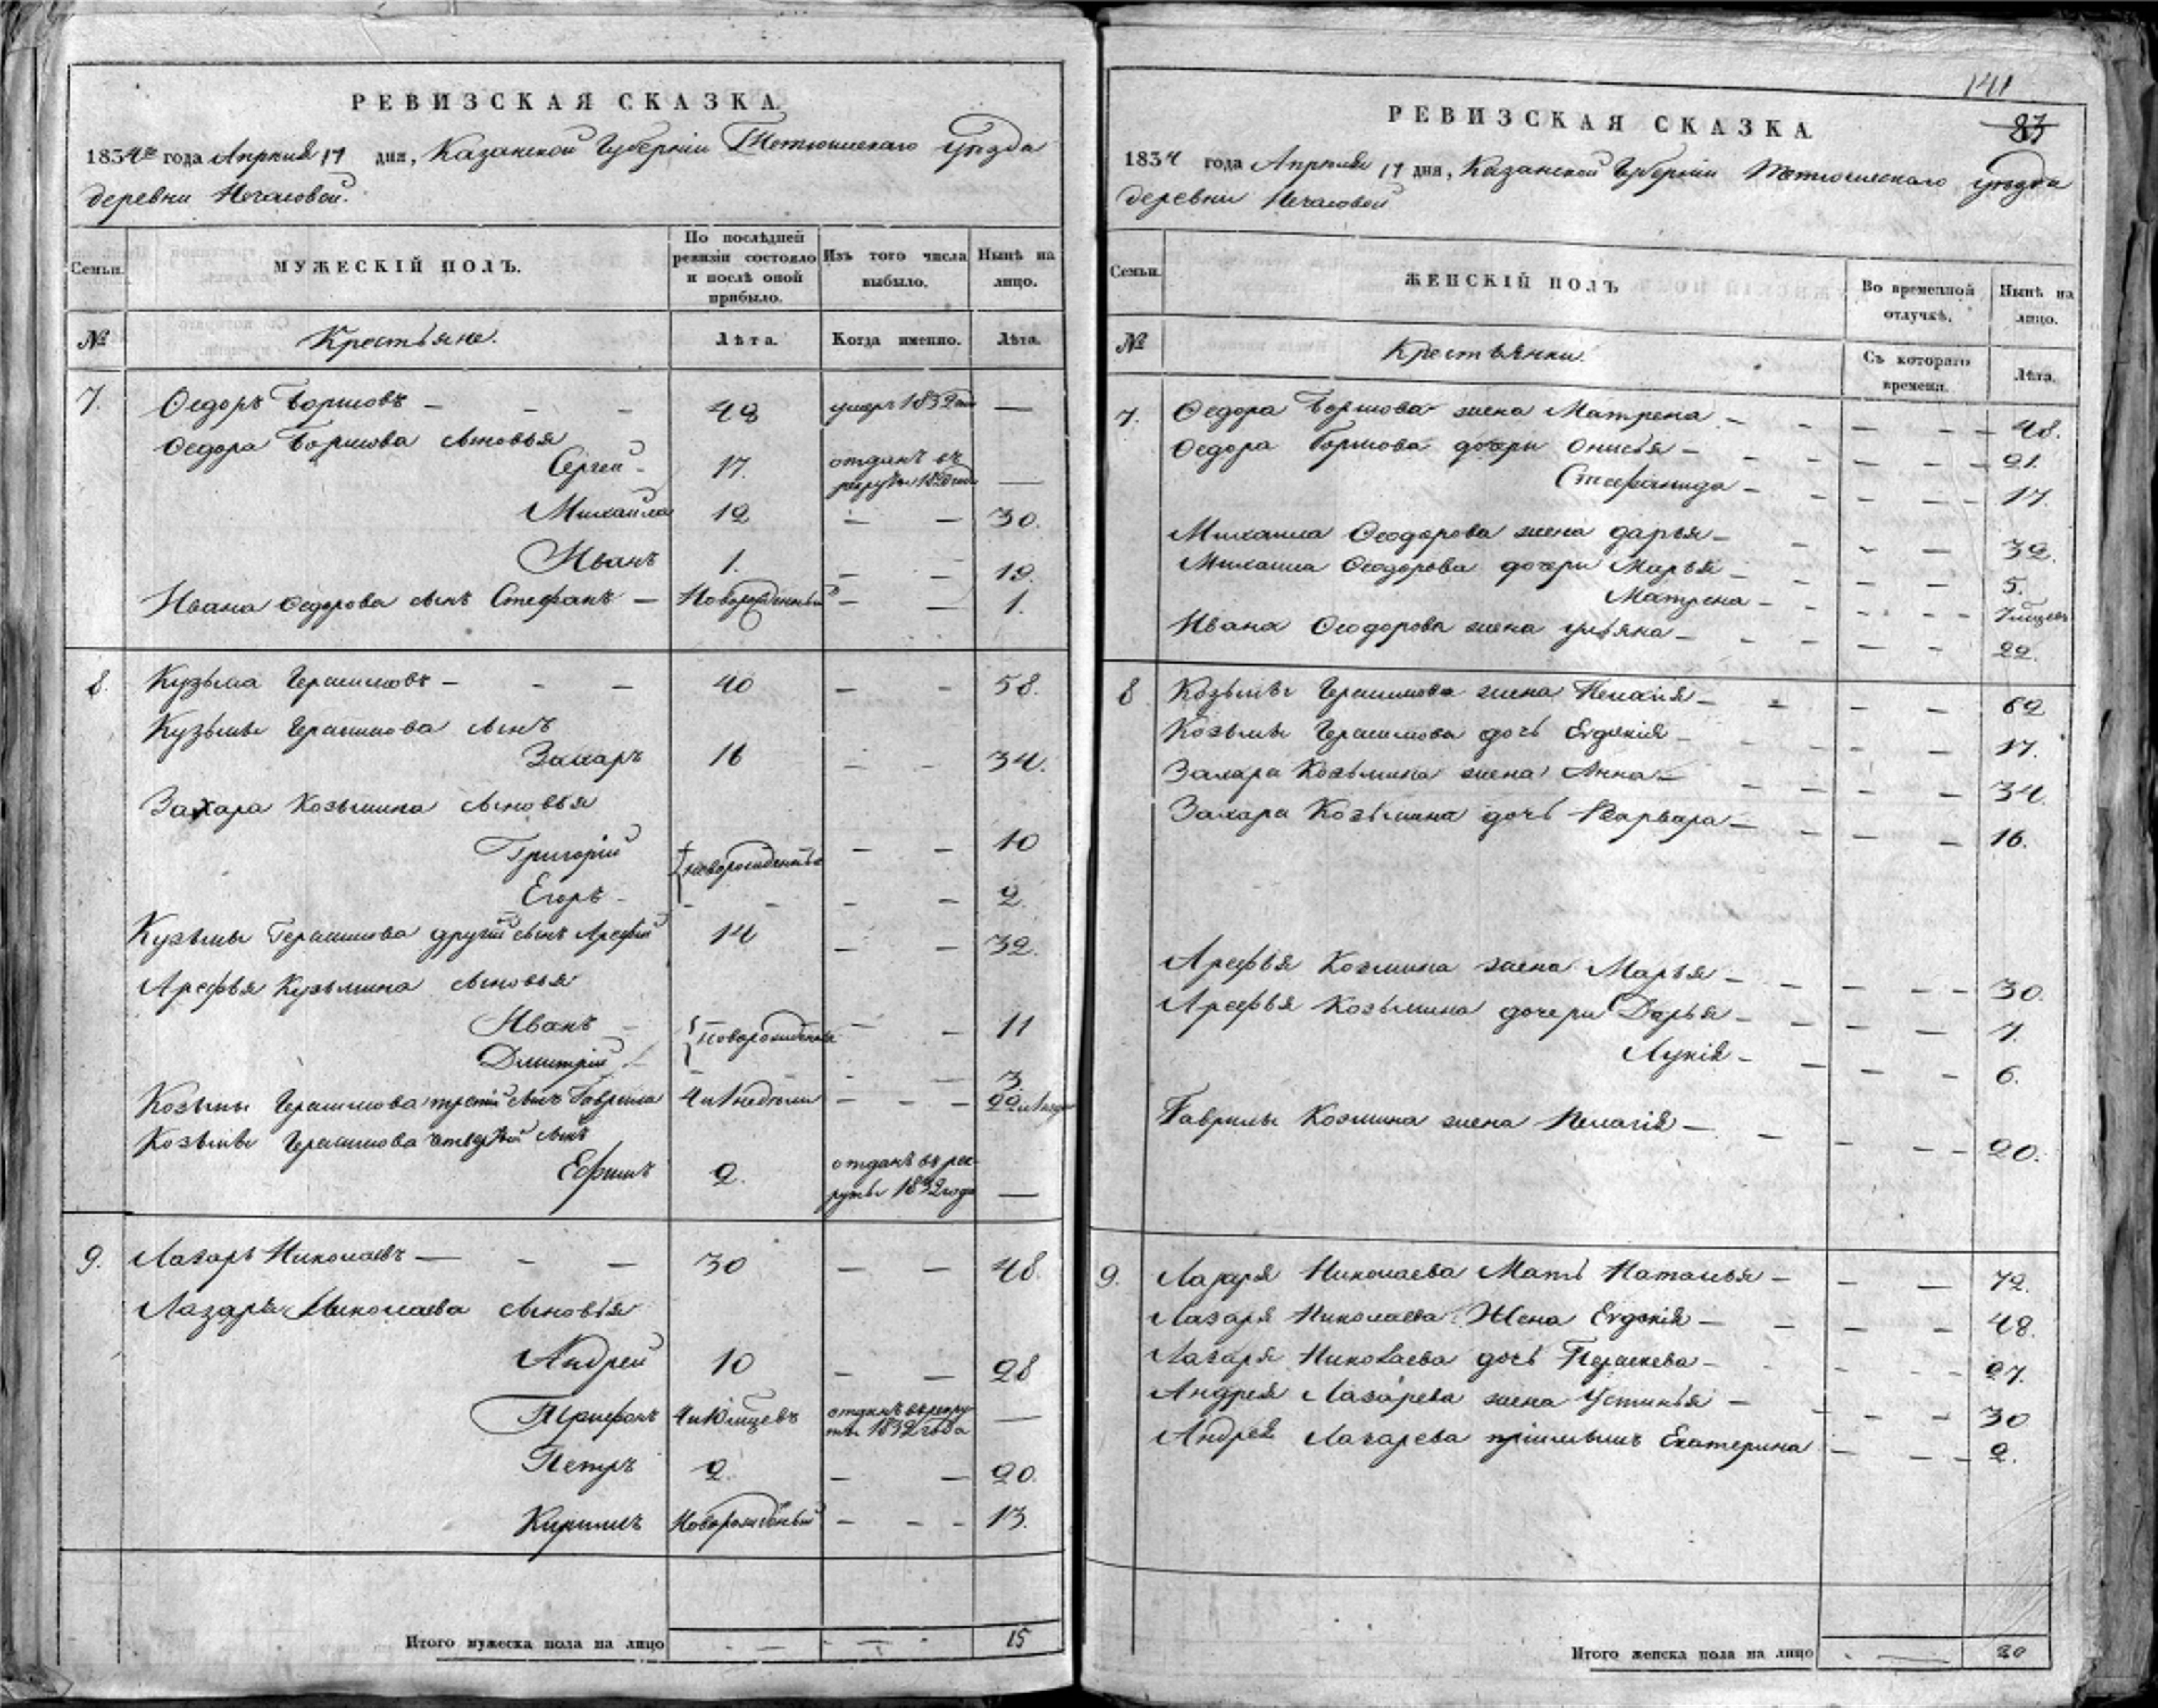 РЕВИЗСКАЯ СКАЗКА.
1834го года Апреля 17 дня, Казанской Губерніи Тетюшскаго уѣзда
деревни
Семьи.
МУЖЕСКІЙ ПОЛЪ.
По послѣдней ревизіи состояло и послѣ оной прибыло.
Изъ того числа выбыло.
Нынѣ на лицо.
№ Крестьяне. Лѣта. Когда именно. Лѣта.
7. Ѳедоръ — 48 умеръ 1832 —
Ѳедора сыновья
Сергей 17. отданъ въ рекруты —
Михайла 12 — — 30.
Иванъ 1. — — 19.
Ивана Ѳедорова сынъ Степанъ — Новорожденный — — 1.
8. Кузьма Герасимовъ — — — 40 — — 58.
Кузьмы Герасимова сынъ
Захаръ 16 — — 34.
Захара Козьмина сыновья
Григорій новорожденные — — 10
Егоръ — — — — 2.
Кузьмы Герасимова другій сынъ Арефій 14 — — 32.
Арефья Кузьмина сыновья
Иванъ — новорожденные — — 11
Дмитрій — — — 3.
Козьмы Герасимова третій сынъ Гаврила 4 и 1 недели — — — 22
Козьмы Герасимова четвертый сынъ
Ефимъ 2. отданъ въ рекруты 1832 года —
9. Лазарь Николаевъ — — — 30 — — 48.
Лазаря Николаева сыновья
Андрей 10 — — 28
Трифонъ отданъ въ рекруты 1832 года —
Петръ 2. — — 20.
Кирилъ Новорожденный — — — 13.
Итого мужеска пола на лицо — — — 15
141
83
РЕВИЗСКАЯ СКАЗКА.
1834 года Апреля 17 дня, Казанской Губерніи Тетюшскаго уѣзда
деревни
Семьи.
ЖЕНСКІЙ ПОЛЪ
Во временной отлучкѣ.
Нынѣ на лицо.
№ Крестьянки. Съ котораго времени. Лѣта.
7. Ѳедора жена Матрена — — — — 48.
Ѳедора дочери Онисья — — — — 21.
Стефанида — — — — 17.
Михаила Ѳеодорова жена дарья — — — — 32.
Михаила Ѳеодорова дочери Марья — — — — 5.
Матрена — — — —
Ивана Ѳеодорова жена ульяна — — — — 22.
8 Козьмы Герасимова жена — — — — 62
Козьмы Герасимова дочь Евдокія — — — — 17.
Захара Козьмина жена Анна — — — — 34.
Захара Козьмина дочь Варвара — — — — 16.
Арефья Козмина жена Марья — — — — 30.
Арефья Козьмина дочери Дарья — — — — 7.
Лукія — — — — 6.
Гаврилы Козмина жена Пелагія — — — — 20.
9. Лазаря Николаева Мать Наталья — — — 72.
Лазаря Николаева Жена Евдокія — — — — 48.
Лазаря Николаева дочь Параскева — — — — 27.
Андрея Лазарева жена Устинья — — — — 30
Андрея Лазарева Екатерина — — — 2.
Итого женска пола на лицо — — 20